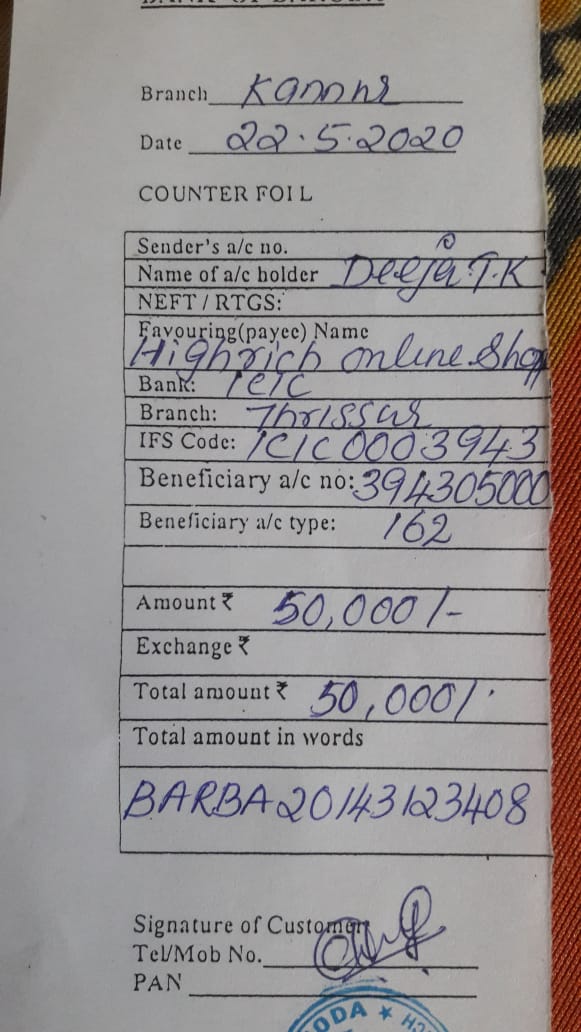 Branch Kannur
Date 22.5.2020
COUNTER FOIL
Sender's a/c no.
Name of a/c holder Deeja T.K
NEFT / RTGS:
Favouring(payee) Name
Highrich online Shop
Bank: ICIC
Branch: Thrissur
IFS Code: ICIC0003943
Beneficiary a/c no: 394305000
Beneficiary a/c type: 162
Amount ₹ 50,000/-
Exchange ₹
Total amount ₹ 50,000/-
Total amount in words
BARBA20143123408
Signature of Customer
Tel/Mob No.
PAN
ODA ★